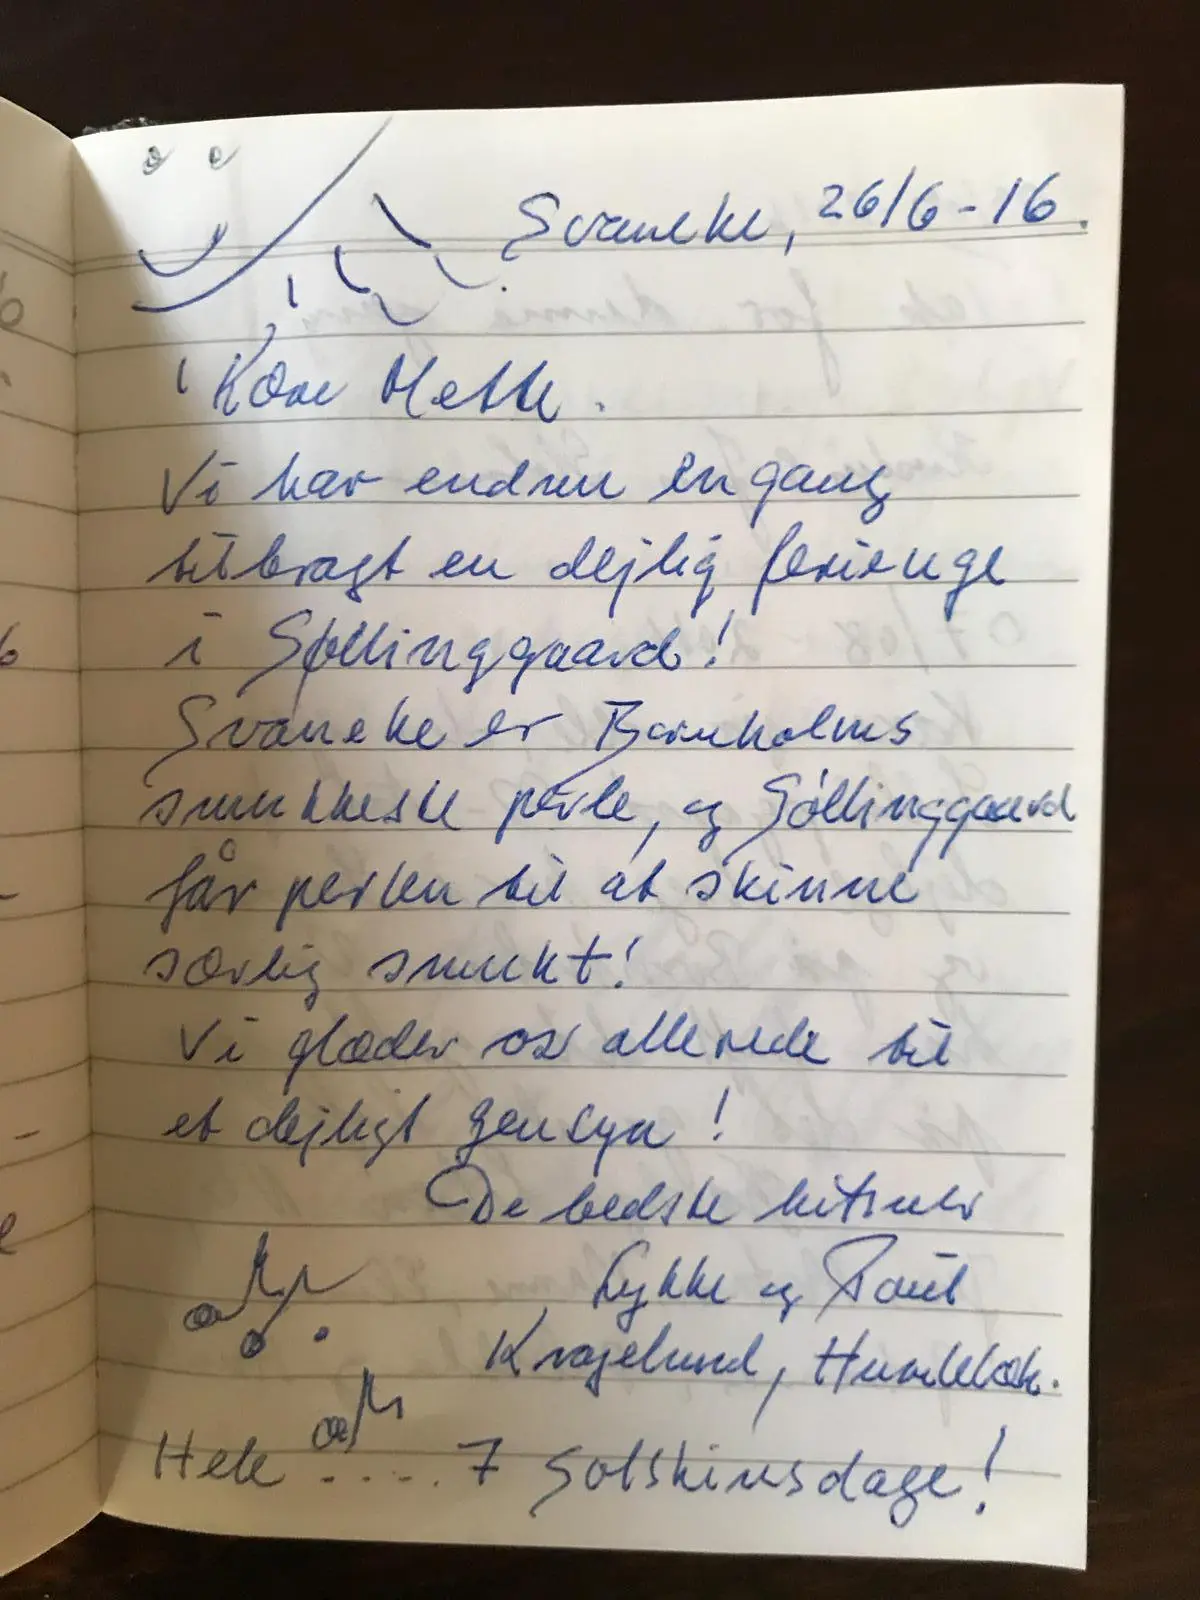 Svaneke, 26/6-16.
Kære Mette.
Vi har endnu en gang
tilbragt en dejlig ferieuge
i Søllinggaard!
Svaneke er Bornholms
smukkeste perle, og Søllinggaard
får perlen til at skinne
særlig smukt!
Vi glæder os allerede til
et dejligt gensyn!
De bedste hilsner
Lykke og Poul
Kragelund, Humlebæk.
Hele .... 7 solskinsdage!